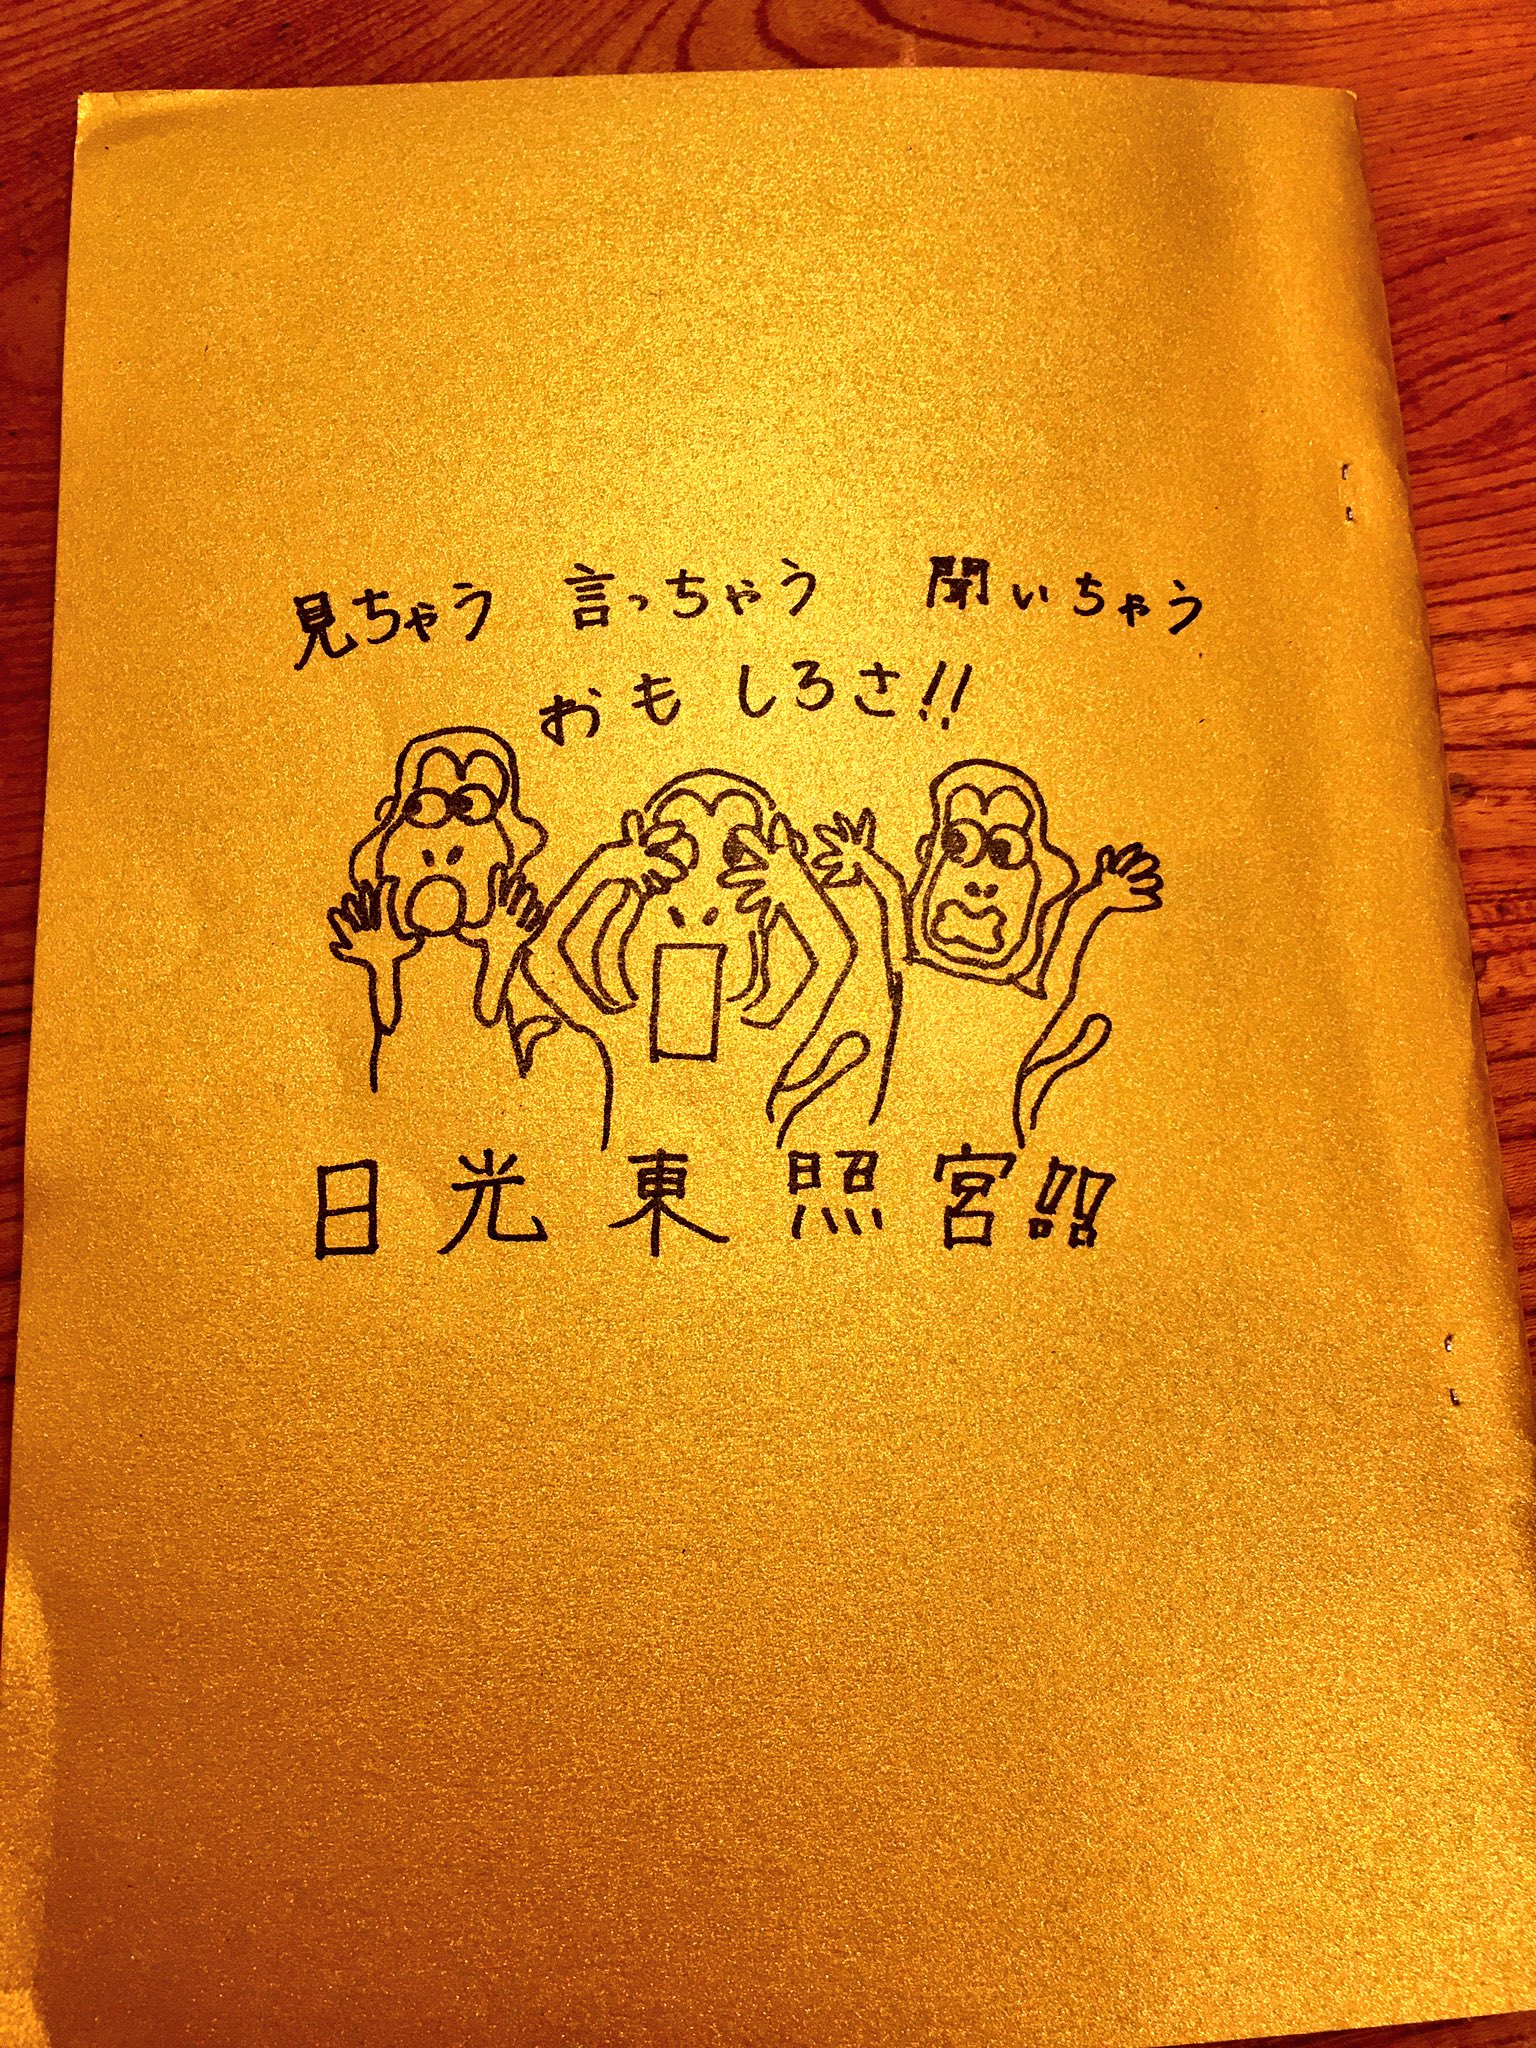 見ちゃう 言っちゃう 聞いちゃう
おもしろさ!!
日光東照宮!!